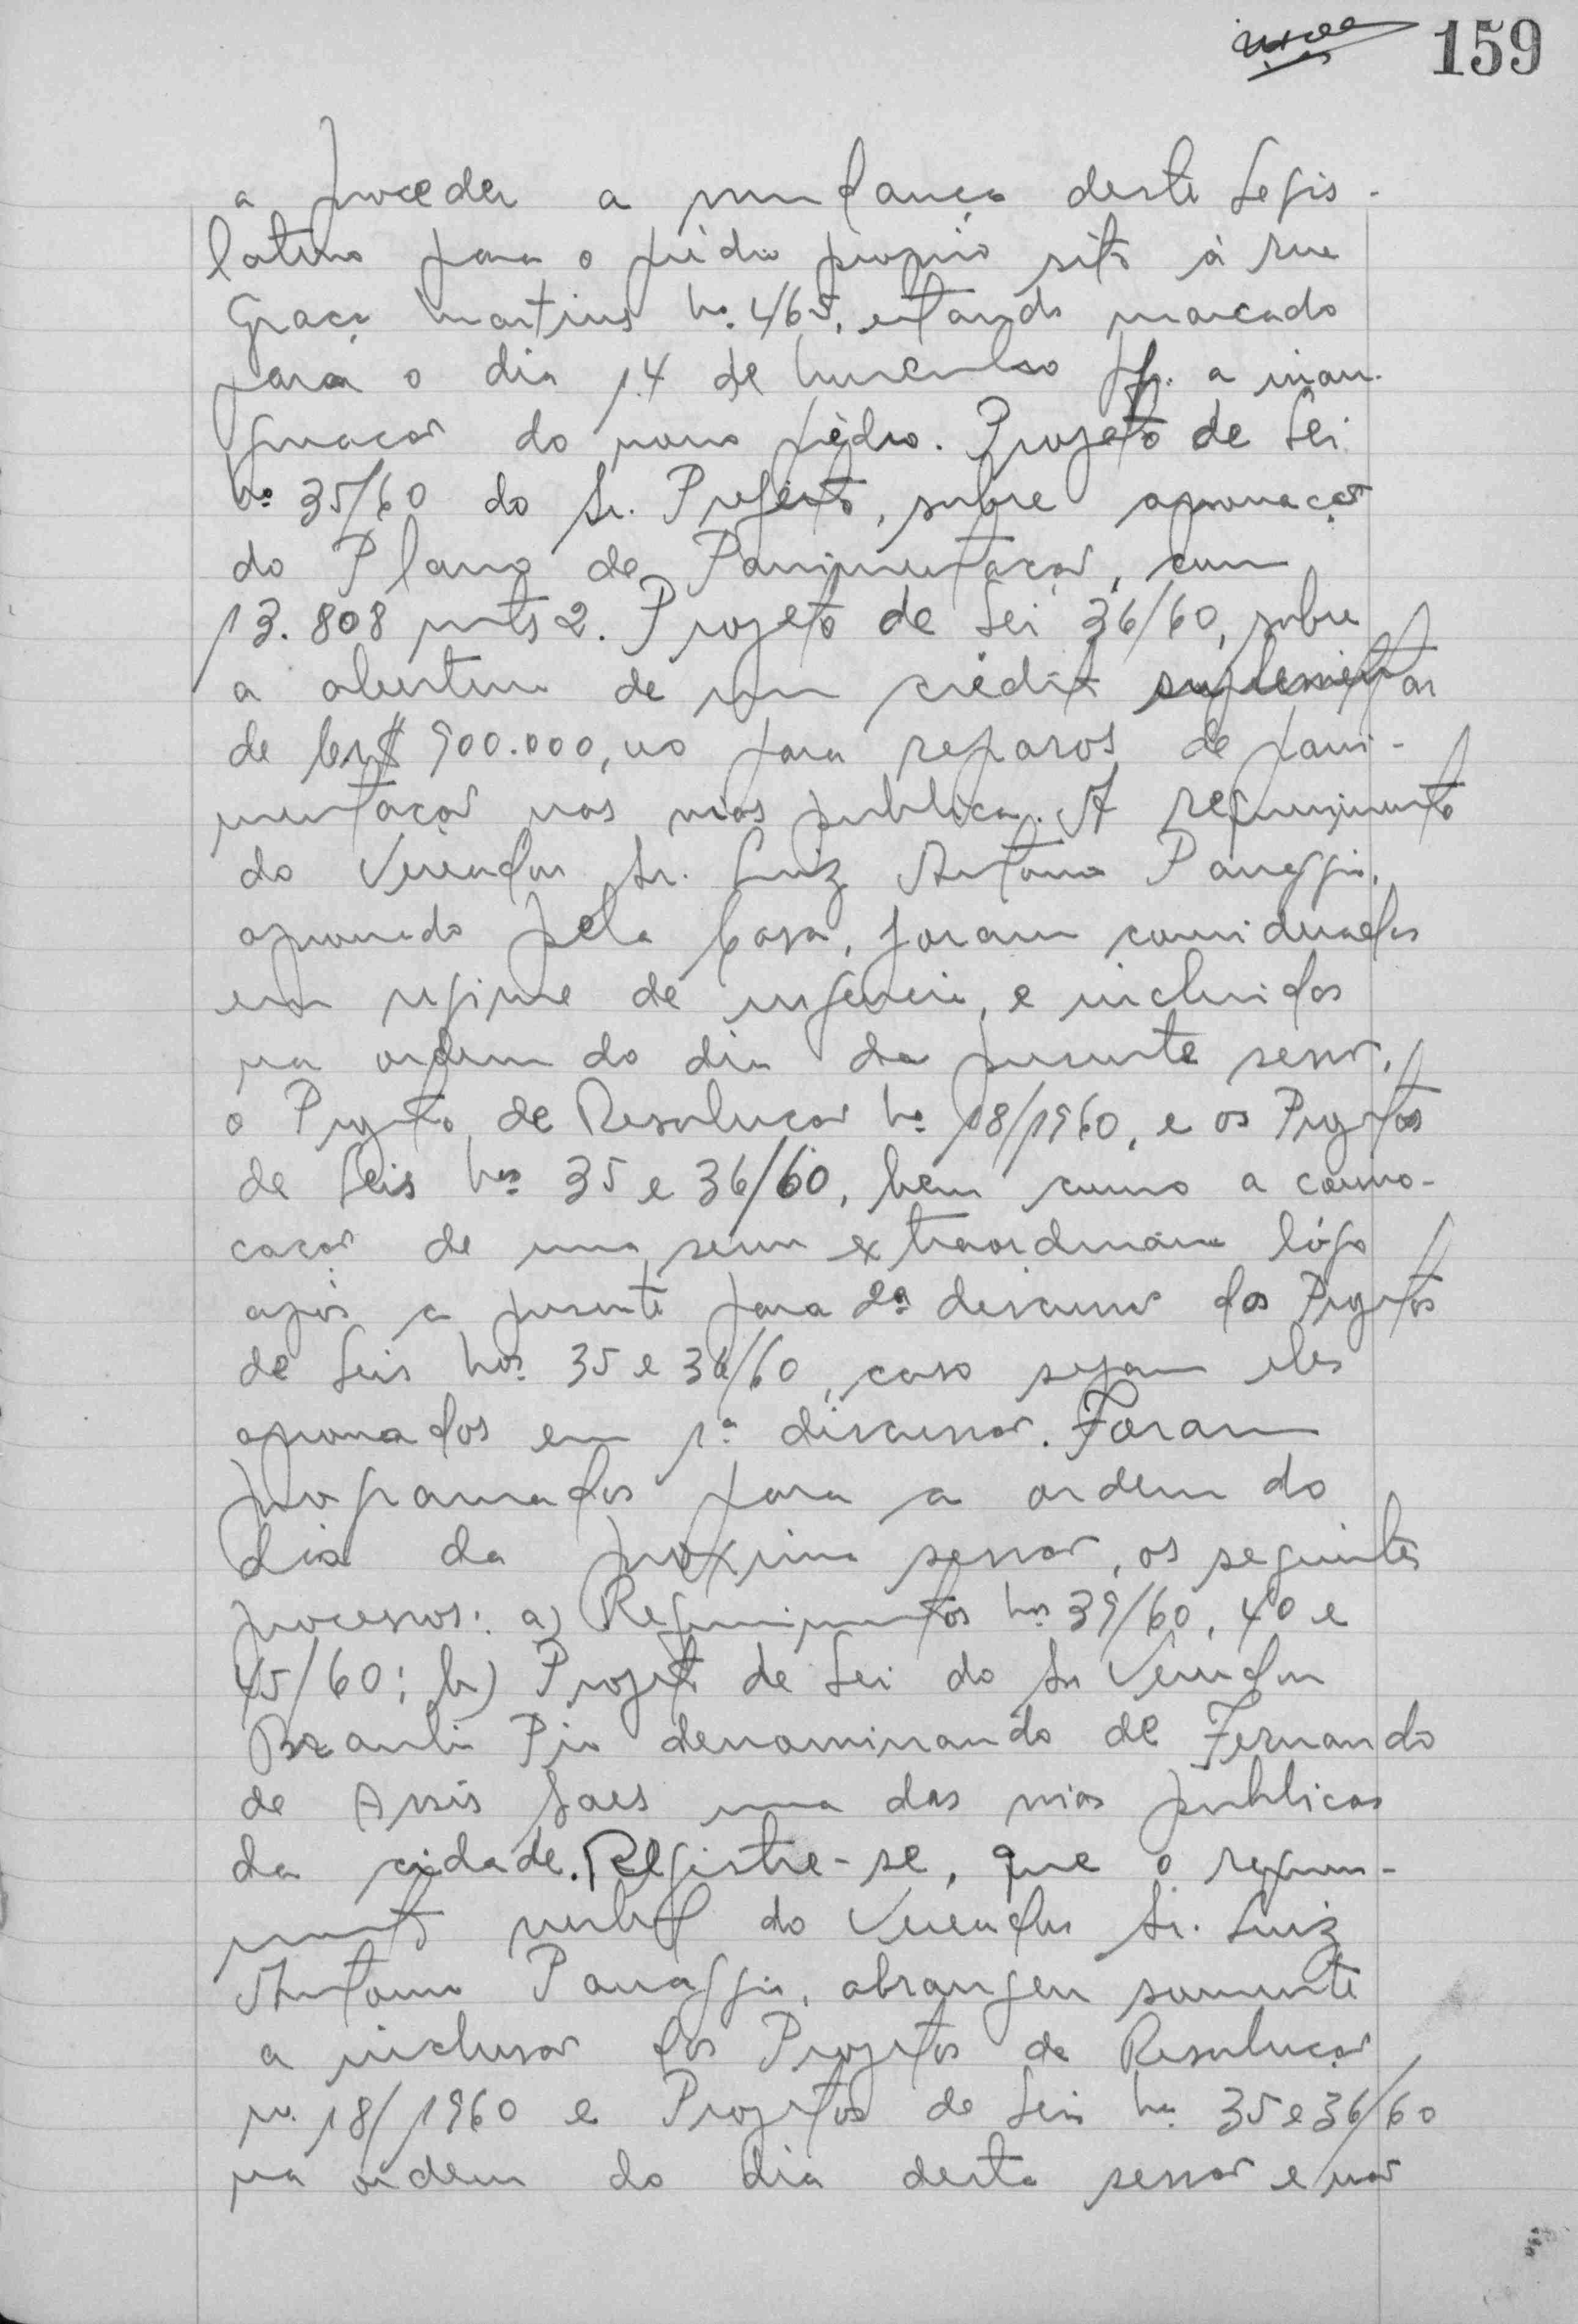 159
a proceder a mudança deste Legis-
lativo para o prédio proprio sito à rua
Graça Martins nº 465, estando marcado
para o dia 14 de Novembro pf. a inau-
guração do novo prédio. Projeto de Lei
nº 35/60 do Sr. Prefeito, sobre aprovação
do Plano de Pavimentação, com
13.808 mts2. Projeto de Lei 36/60, sobre
a abertura de um crédito suplementar
de Cr$ 900.000,00 para reparos de pavi-
mentação nas vias publicas. A requerimento
do Vereador Sr. Luiz Antonio Panaggio,
aprovado pela Casa, foram considerados
em regime de urgencia, e incluidos
na ordem do dia da presente sessão,
o Projeto de Resolução nº 18/1960, e os Projetos
de Leis nºs 35 e 36/60, bem como a convo-
cação de uma sessão extraordinária lógo
após a presente para 2ª discussão dos Projetos
de Leis nºs 35 e 36/60, caso sejam eles
aprovados em 1ª discussão. Foram
programados para a ordem do
dia da proxima sessão, os seguintes
processos: a) Requerimentos nºs 39/60, 40 e
45/60; b) Projeto de Lei do Sr Vereador
Braulio Pio denominando de Fernando
de Assis Saes uma das vias publicas
da cidade. Registre-se, que o requeri-
mento verbal do Vereador Sr. Luiz
Antonio Panaggio, abrangeu somente
a inclusão dos Projetos de Resolução
nº 18/1960 e Projetos de Leis nº 35 e 36/60
na ordem do dia desta sessão e não